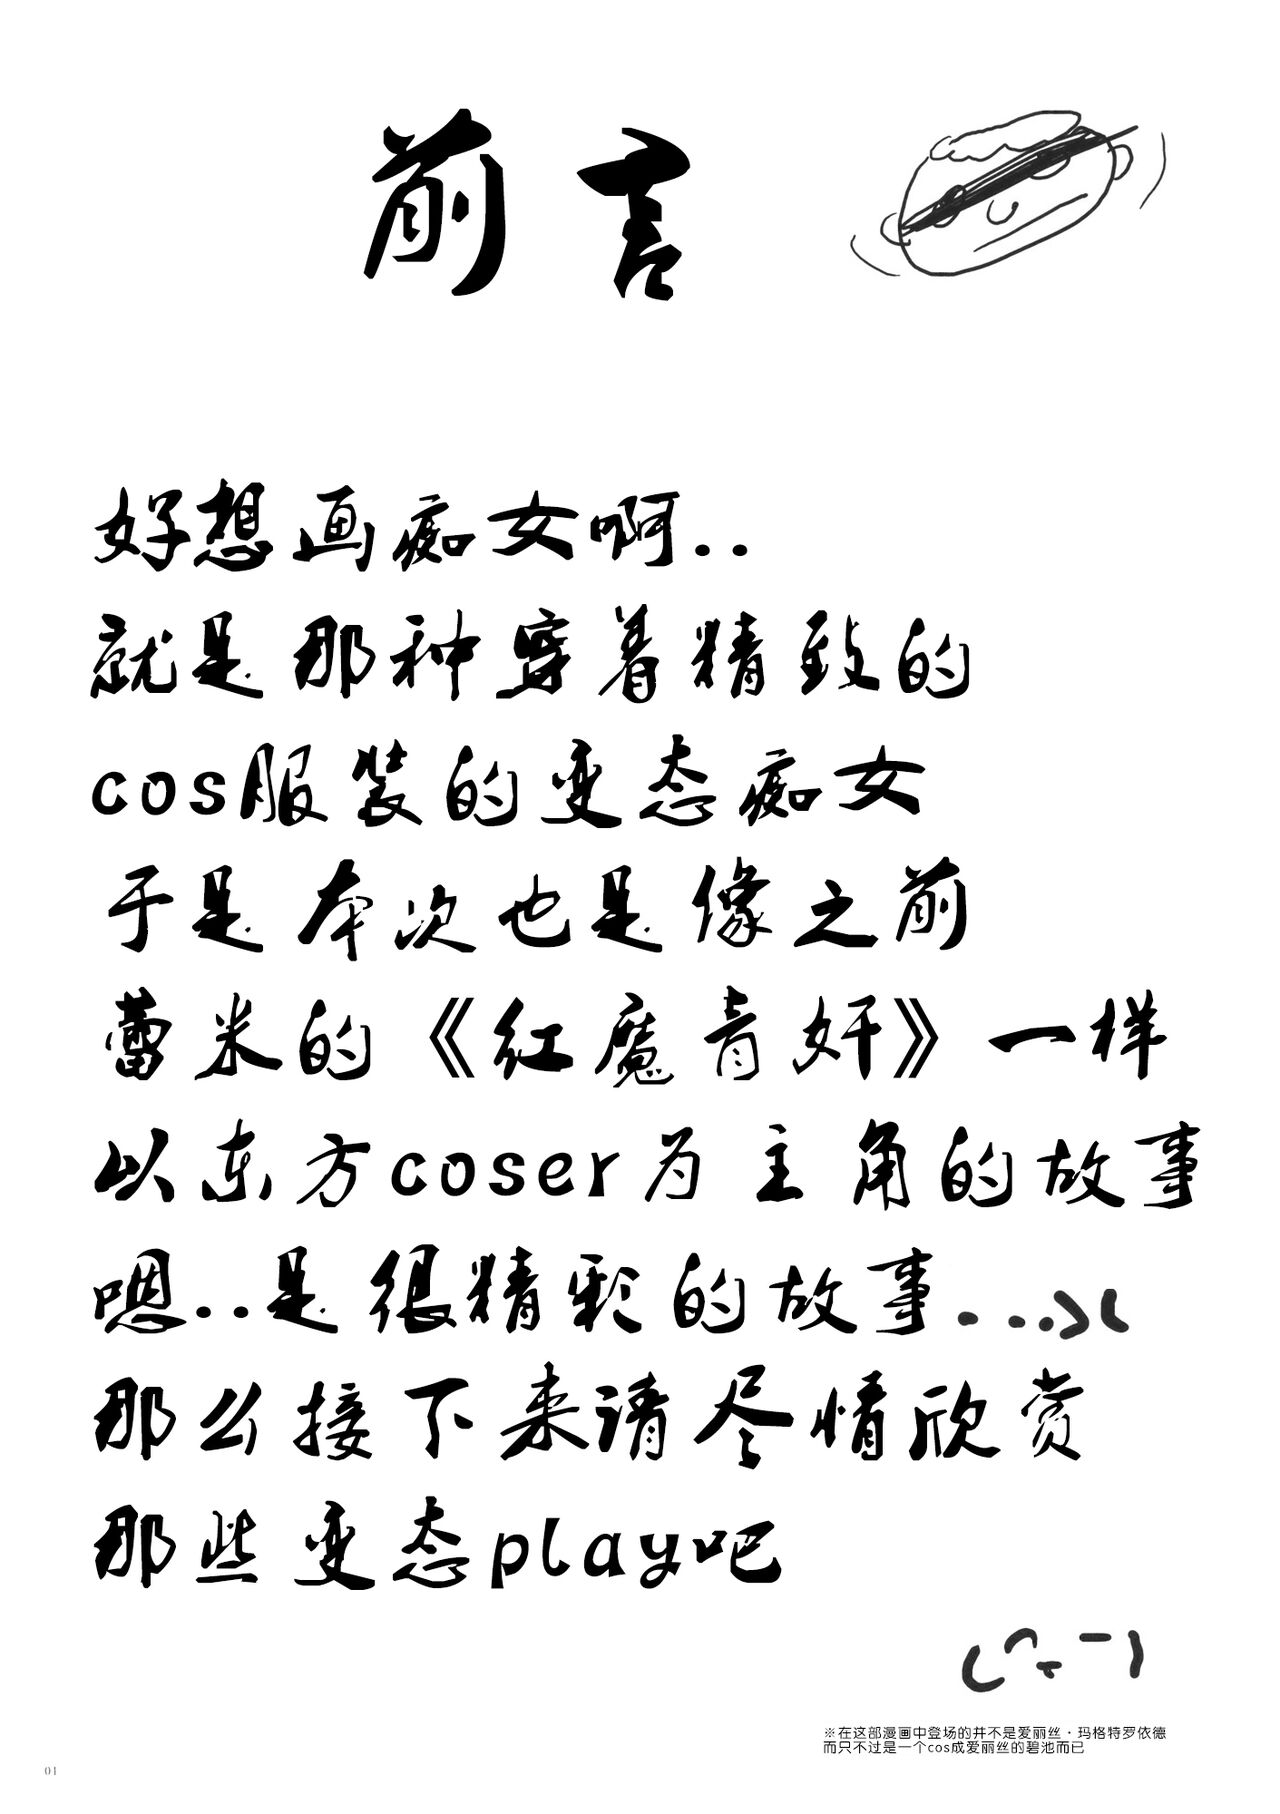 前言
好想画痴女啊..
就是那种穿着精致的
cos服装的变态痴女
于是本次也是像之前
蕾米的《红魔青奸》一样
以东方coser为主角的故事
嗯..是很精彩的故事...
那么接下来请尽情欣赏
那些变态play吧
※在这部漫画中登场的并不是爱丽丝·玛格特罗依德
而只不过是一个cos成爱丽丝的碧池而已
01